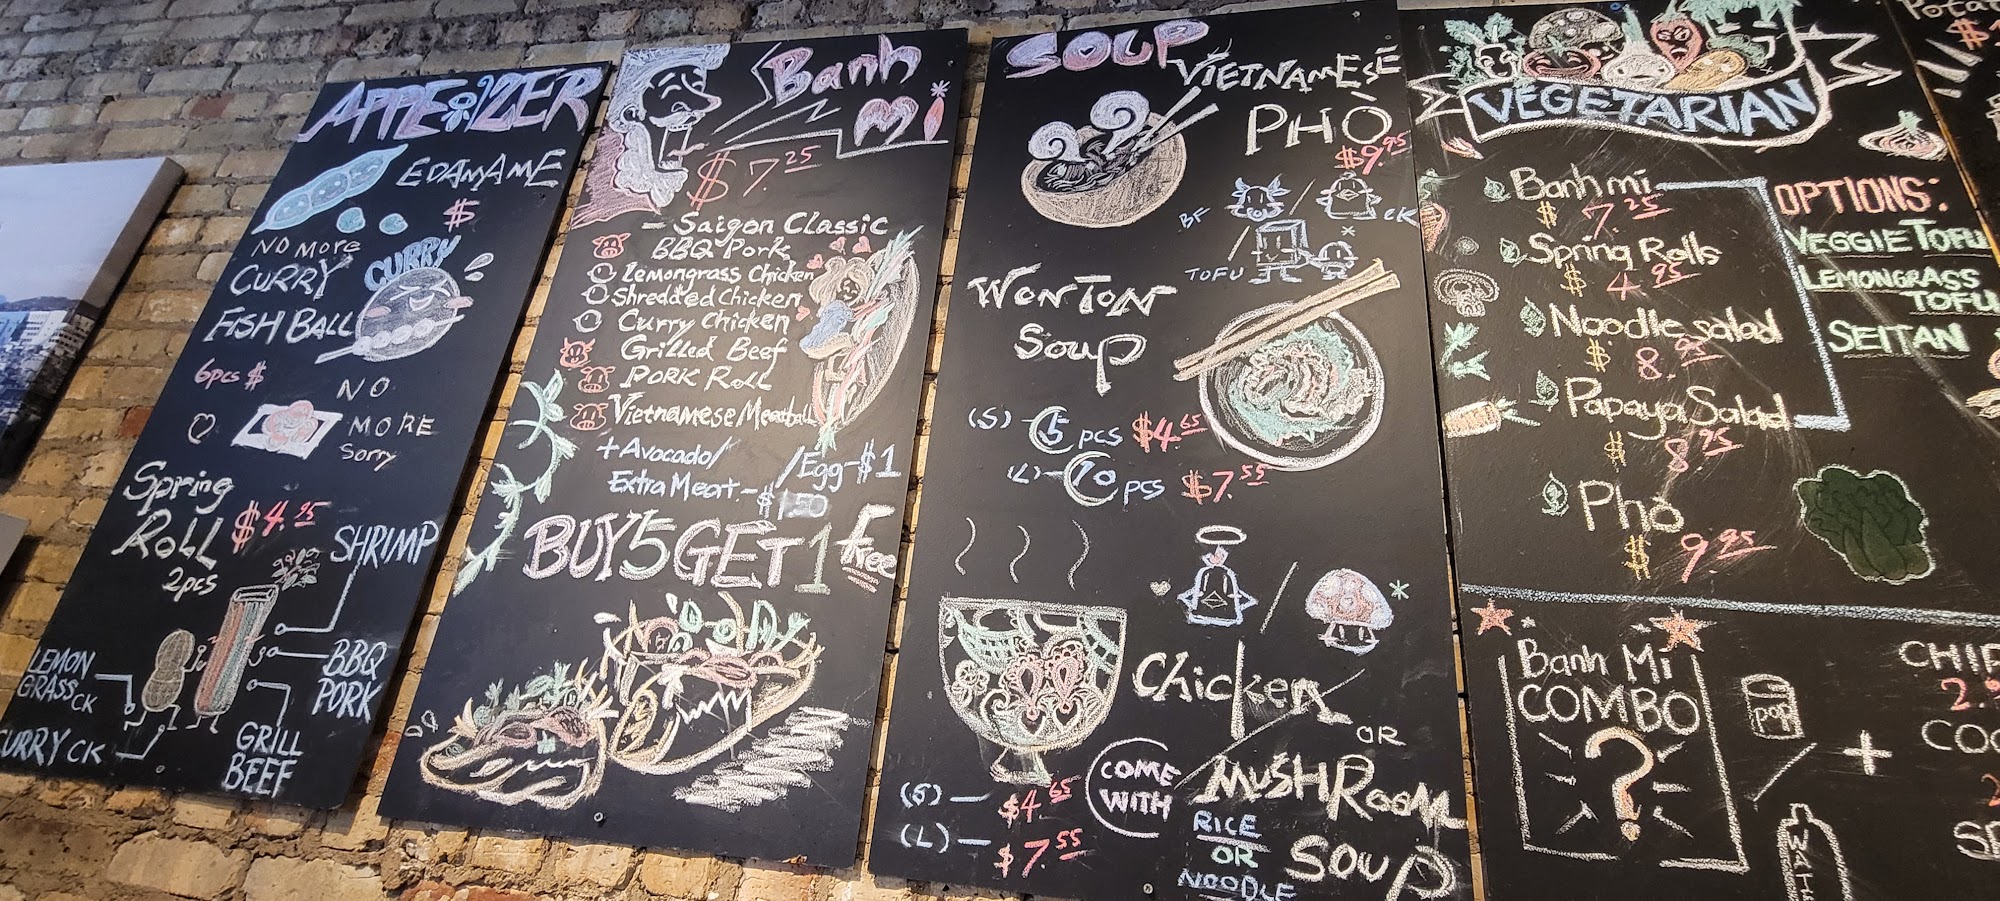 APPETIZER
EDAMAME
$
NO MORE
CURRY
CURRY
FISH BALL
6pcs $
NO
MORE
Sorry
Spring
Roll $4.95
2pcs
SHRIMP
LEMON
GRASS CK
BBQ
PORK
CURRY CK
GRILL
BEEF
Banh
Mi
$7.25
- Saigon Classic
BBQ Pork
Lemongrass Chicken
Shredded Chicken
Curry Chicken
Grilled Beef
PORK Roll
Vietnamese Meatball
+ Avocado/
/Egg-$1
Extra Meat-$
BUY 5 GET 1 Free
SOUP
VIETNAMESE
PHÒ
$9.95
BF / CK
TOFU /
*
WONTON
Soup
(S) - 5 pcs $4.65
(L) - 10 pcs $7.55
/ *
Chicken /
OR
MUSHROOM
SOUP
COME
WITH
RICE
OR
NOODLE
(S) — $4.65
(L) — $7.55
VEGETARIAN
Banh mi
$7.25
Spring Rolls
$4.95
Noodle salad
$8.95
Papaya Salad
$8.95
Pho
$9.95
OPTIONS:
VEGGIE TOFU
LEMONGRASS
TOFU
SEITAN
Banh Mi
COMBO
?
pop
/
+